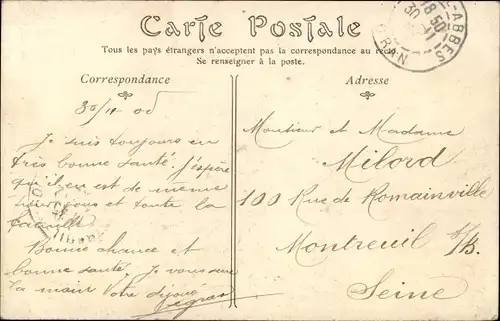 Carte Postale
Tous les pays étrangers n'acceptent pas la correspondance au recto.
Se renseigner à la poste.
Correspondance
Adresse
ORAN
Je suis toujours en
très bonne santé. J'espère
qu'il en est de même
pour vous et toute la
famille
Bonne chance et
bonne santé. Je vous serre
la main Votre dévoué
Monsieur et Madame
Milord
100 Rue de Romainville
Montreuil s/B.
Seine